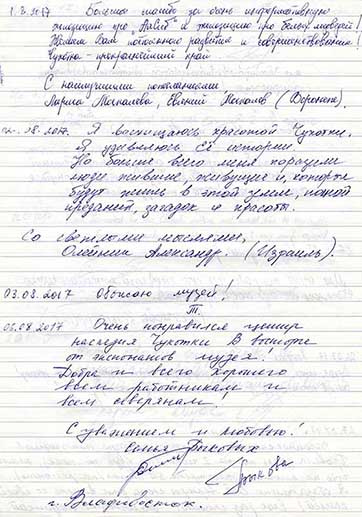 1.8.2017 Большое спасибо за очень информативную
экскурсию про "Навал" и экскурсию про белых медведей!
Желаем Вам постоянного развития и совершенствования!
Чукотка - прекраснейший край
С наилучшими пожеланиями
Лариса, Евгений (Воронеж).
2017. Я восхищаюсь красотой Чукотки.
Я удивляюсь её истории.
Но больше всего меня поразили
люди жившие, живущие и, которые
будут жить в этой земле, полной
преданий, загадок и красоты.
Со светлыми мыслями,
Олейник Александр. (Израиль).
03.08.2017 Обожаю музей!
Т.
05.08.2017 Очень понравился центр
наследия Чукотки В восторге
от экспонатов музея!
Добра и всего хорошего
всем работникам и
всем северянам!
С уважением и любовью!
семья Быковых
Быкова
г. Владивосток.